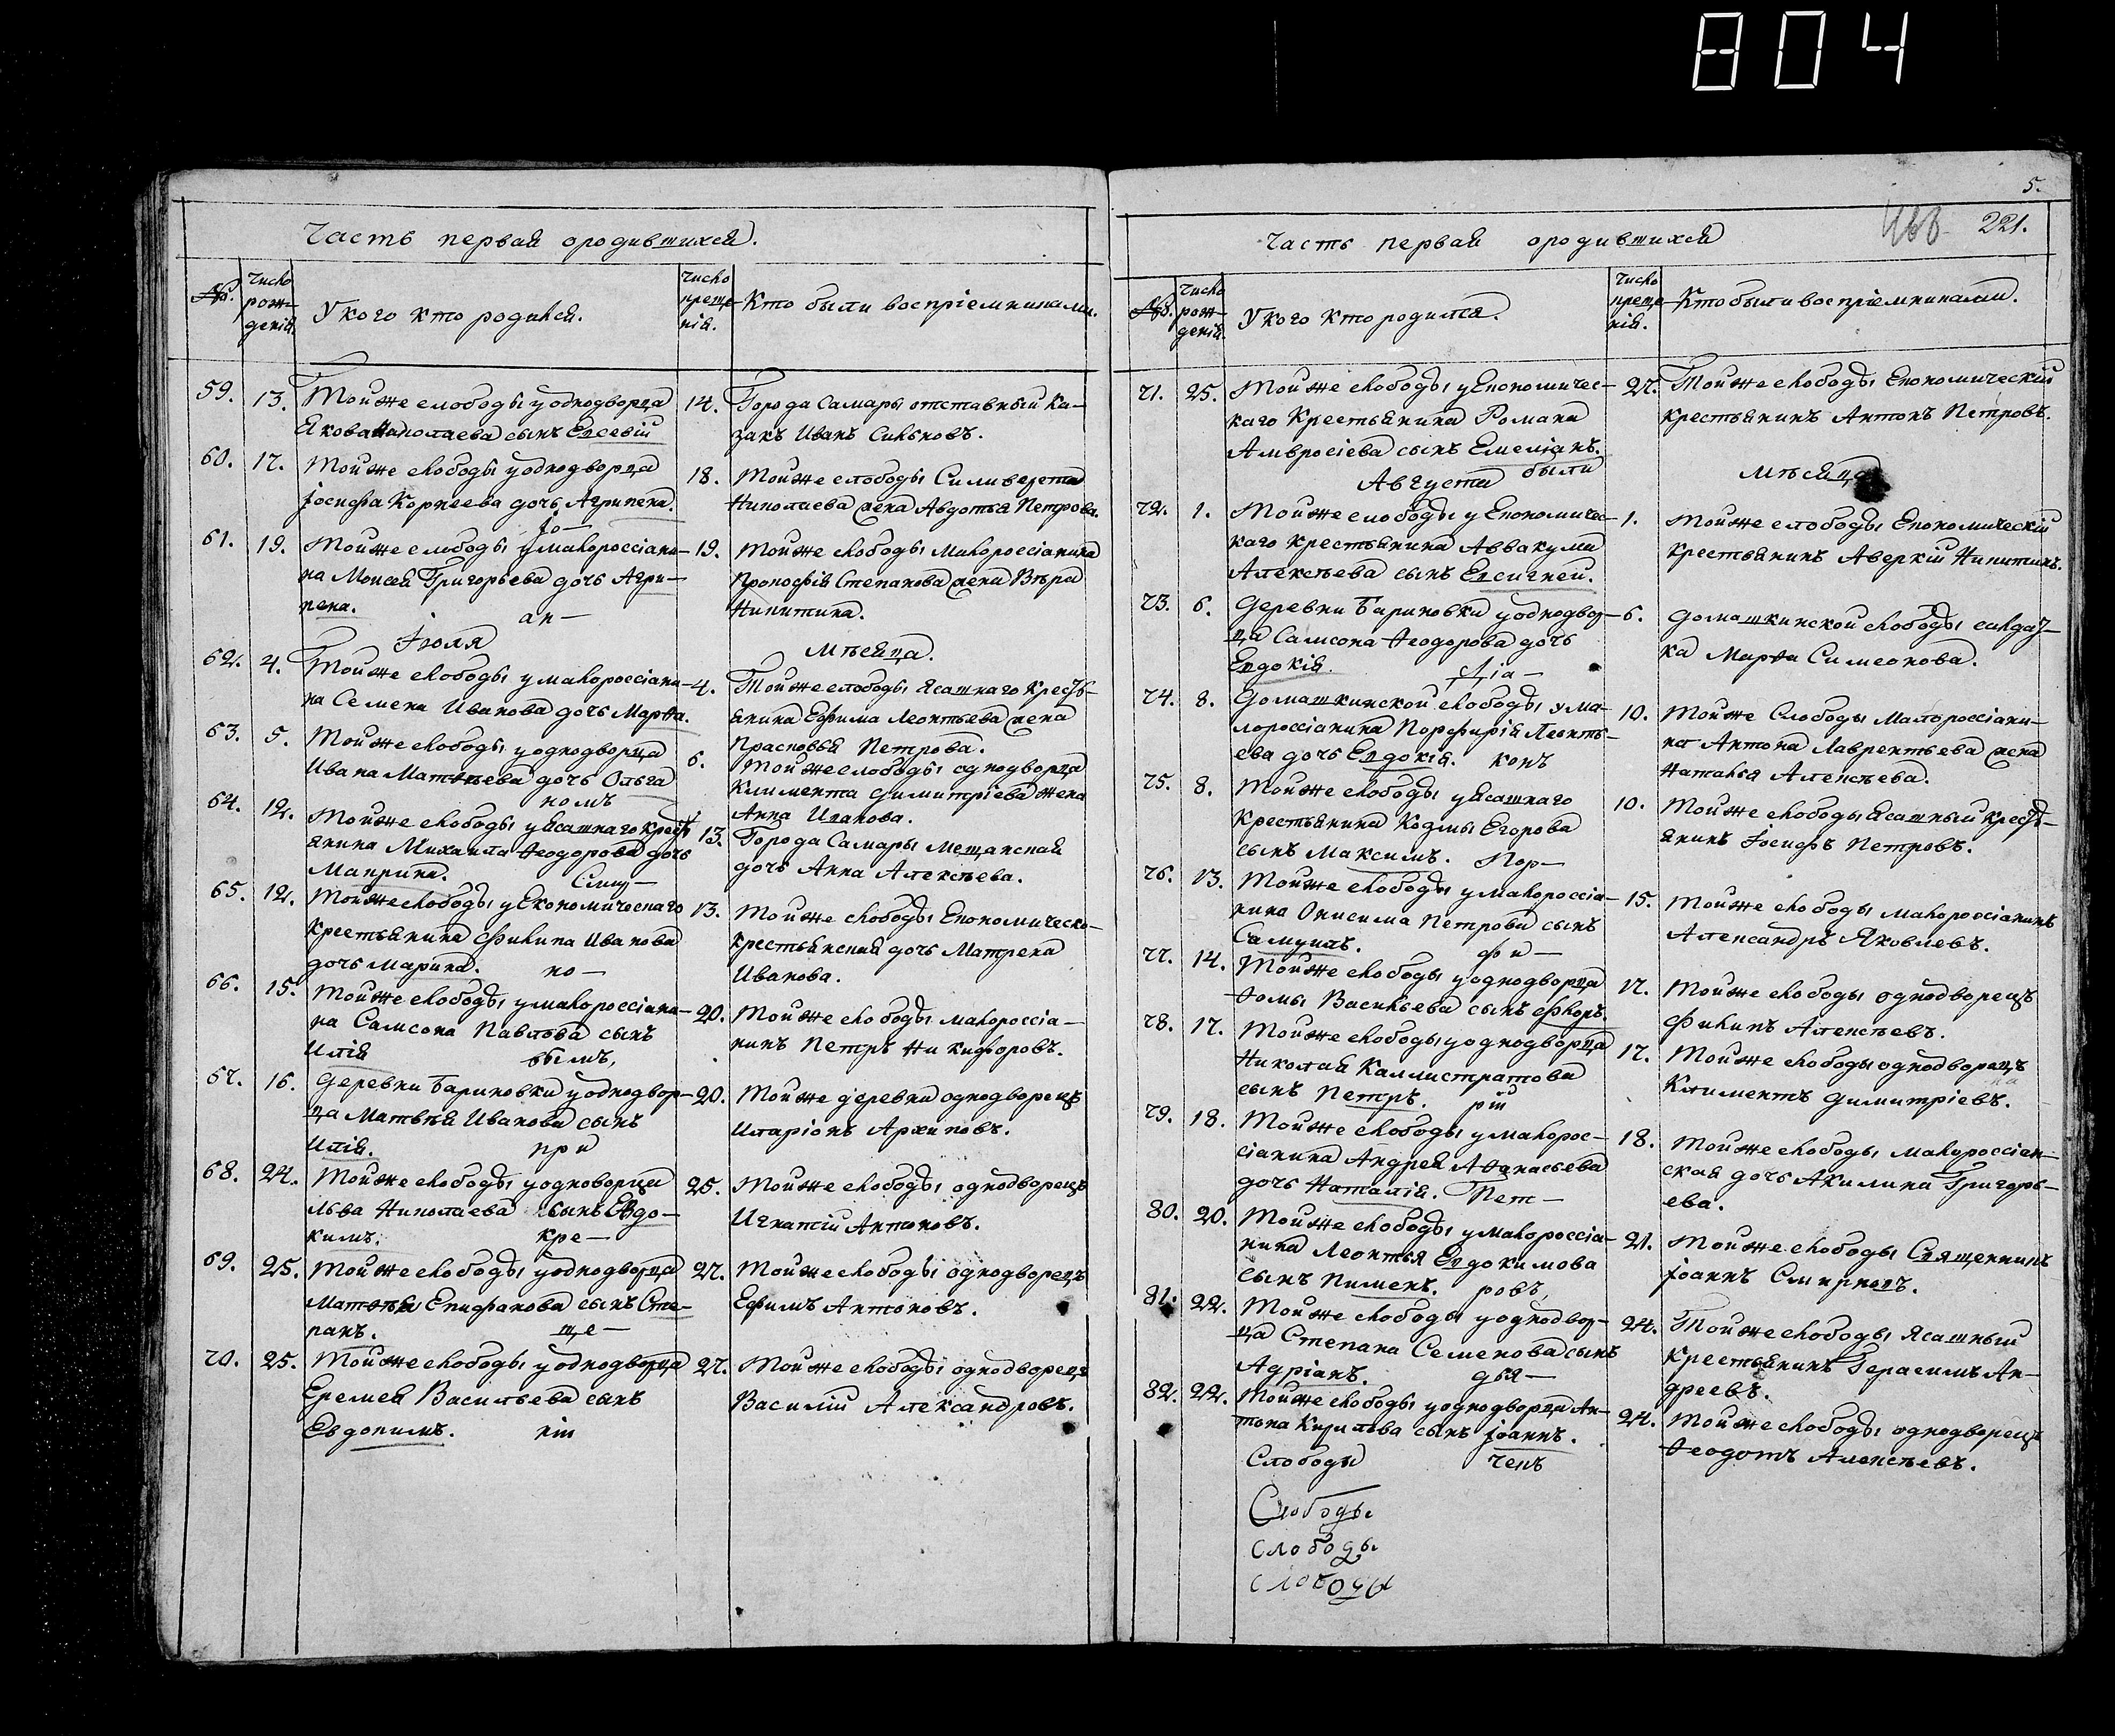 804
Часть перваяородившихся.
№.
Число рож-денія
У кого кто родился.
Число креще-нія.
Кто были воспріемниками.
59. 13. Тойже слободы уоднодворца
Якова Николаева сынъ Евсевій
14. Города Самары отставный Ка-
закъ Иванъ Сильновъ.
60. 17. Тойже слободы уоднодворца
Іосифа Корнеева дочь Агрипена.
Іо—
18. Тойже слободы Силиверста
Николаева жена Авдотья Петрова.
61. 19. Тойже слободы умалороссіани-
на Моисея Григорьева дочь Агри-
пена. ан—
19. Тойже слободы Малороссіанина
Прокофія Степанова жена Вѣра
Никитина.
Іюля Мѣсяца.
62. 4. Тойже слободы умалороссіани-
на Семена Иванова дочь Марѳа.
4. Тойже слободы Ясашнаго Крестъ-
янина Ефима Леонтьева жена
Прасковья Петрова.
63. 5. Тойже слободы уоднодворца
Ивана Матѳѣева дочь Ольга
номъ
6. Тойже слободы однодворца
Климента Димитріева жена
Анна Иванова.
64. 12. Тойже слободы уЯсашнаго Крестъ
янина Михаила Ѳеодорова дочь
Макрина. Смир—
13. Города Самары Мещанская
дочь Анна Алексѣева.
65. 12. Тойже слободы уЕкономическаго
Крестьянина Филипа Иванова
дочь Марина. но—
13. Тойже слободы Економическо-
крестьянская дочь Матрена
Иванова.
66. 15. Тойже слободы умалороссіани-
на Самсона Павлова сынъ
Илія вымъ,
20. Тойже слободы малороссіа-
нинъ Петръ Никифоровъ.
67. 16. Деревни Бариновки уоднодвор-
ца Матвѣя Иванова сынъ
Илія. при
20. Тойже деревни однодворецъ
Иларіонъ Архиповъ.
68. 24. Тойже слободы уодноворца
Льва Николаева сынъ Евдо-
кимъ. кре—
25. Тойже слободы однодворецъ
Игнатій Антоновъ.
69. 25. Тойже слободы уоднодворца
Матѳѣя Епифанова сынъ Сте-
ранъ. ще—
27. Тойже слободы однодворецъ
Ефимъ Антоновъ.
70. 25. Тойже слободы уоднодворца
Еремея Васильева сынъ
Евдокимъ. ніи
27. Тойже слободы однодворецъ
Василій Александровъ.
5.
221.
Часть первая ородившихся
№.
Число рож-денія
У кого кто родился.
Число креще-нія.
Кто были воспріемниками.
71. 25. Тойже слободы уЕкономичес-
каго Крестьянина Романа
Амвросіева сынъ Емеліанъ.
были
27. Тойже слободы Економическій
крестьянинъ Антонъ Петровъ.
Августа Мѣсяца
72. 1. Тойже слободы уЕкономичес-
каго крестьянина Аввакума
Алексѣева сынъ Евсигней.
1. Тойже слободы Економическій
крестьянинъ Аверкій Никитинъ.
73. 6. Деревни Бариновки уоднодвор-
ца Самсона Ѳеодорова дочь
Евдокія. Діа—
6. Домашкинской слободы салдат-
ка Марѳа Симеонова.
74. 8. Домашкинской слободы ума-
лороссіанина Порфирія Леонть-
ева дочь Евдокія. конъ
10. Тойже Слободы Малороссіани-
на Антона Лаврентьева жена
Наталья Алексѣева.
75. 8. Тойже слободы уЯсашнаго
Крестьянина Козмы Егорова
сынъ Максимъ. Пор—
10. Тойже слободы Ясашный Крестъ-
янинъ Іосифъ Петровъ.
76. 13. Тойже слободы умалороссіа-
нина Онисима Петрова сынъ
Самуилъ. фи—
15. Тойже слободы малороссіанинъ
Александръ Яковлевъ.
77. 14. Тойже слободы уоднодворца
Ѳомы Васильева сынъ Флоръ.
17. Тойже слободы однодворецъ
Филипъ Алексѣевъ.
78. 17. Тойже слободы уоднодворца
Николая Каллистратова
сынъ Петръ. рій
17. Тойже слободы однодворецъ
Климентъ Димитріевъ.
79. 18. Тойже слободы умалорос-
сіанина Андрея Аѳанасьева
дочь Наталія. Пет—
18. Тойже слободы малороссіан-
ская дочь Акилина Григорь-
ева.
80. 20. Тойже слободы умалороссіа-
нина Леонтья Евдокимова
сынъ Пименъ. ровъ,
21. Тойже слободы Священникъ
Іоаннъ Смирновъ.
81. 22. Тойже слободы уоднодвор-
ца Степана Семенова сынъ
Адріанъ. дья—
24. Тойже слободы Ясашный
Крестьянинъ Герасимъ Ан-
дреевъ.
82. 22. Тойже слободы уоднодворца Ан-
тона Кирилова сынъ Іоаннъ.
24. Тойже слободы однодворецъ
Ѳеодотъ Алексѣевъ.
Слободы чекъ
Слободы
слободы
слободы